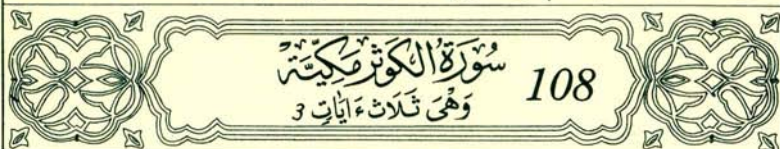 سُورَةُ الكَوْثَرِ مَكِّيَّةٌ 108
وَهْيَ ثَلَاثُ ءَايَاتٍ 3